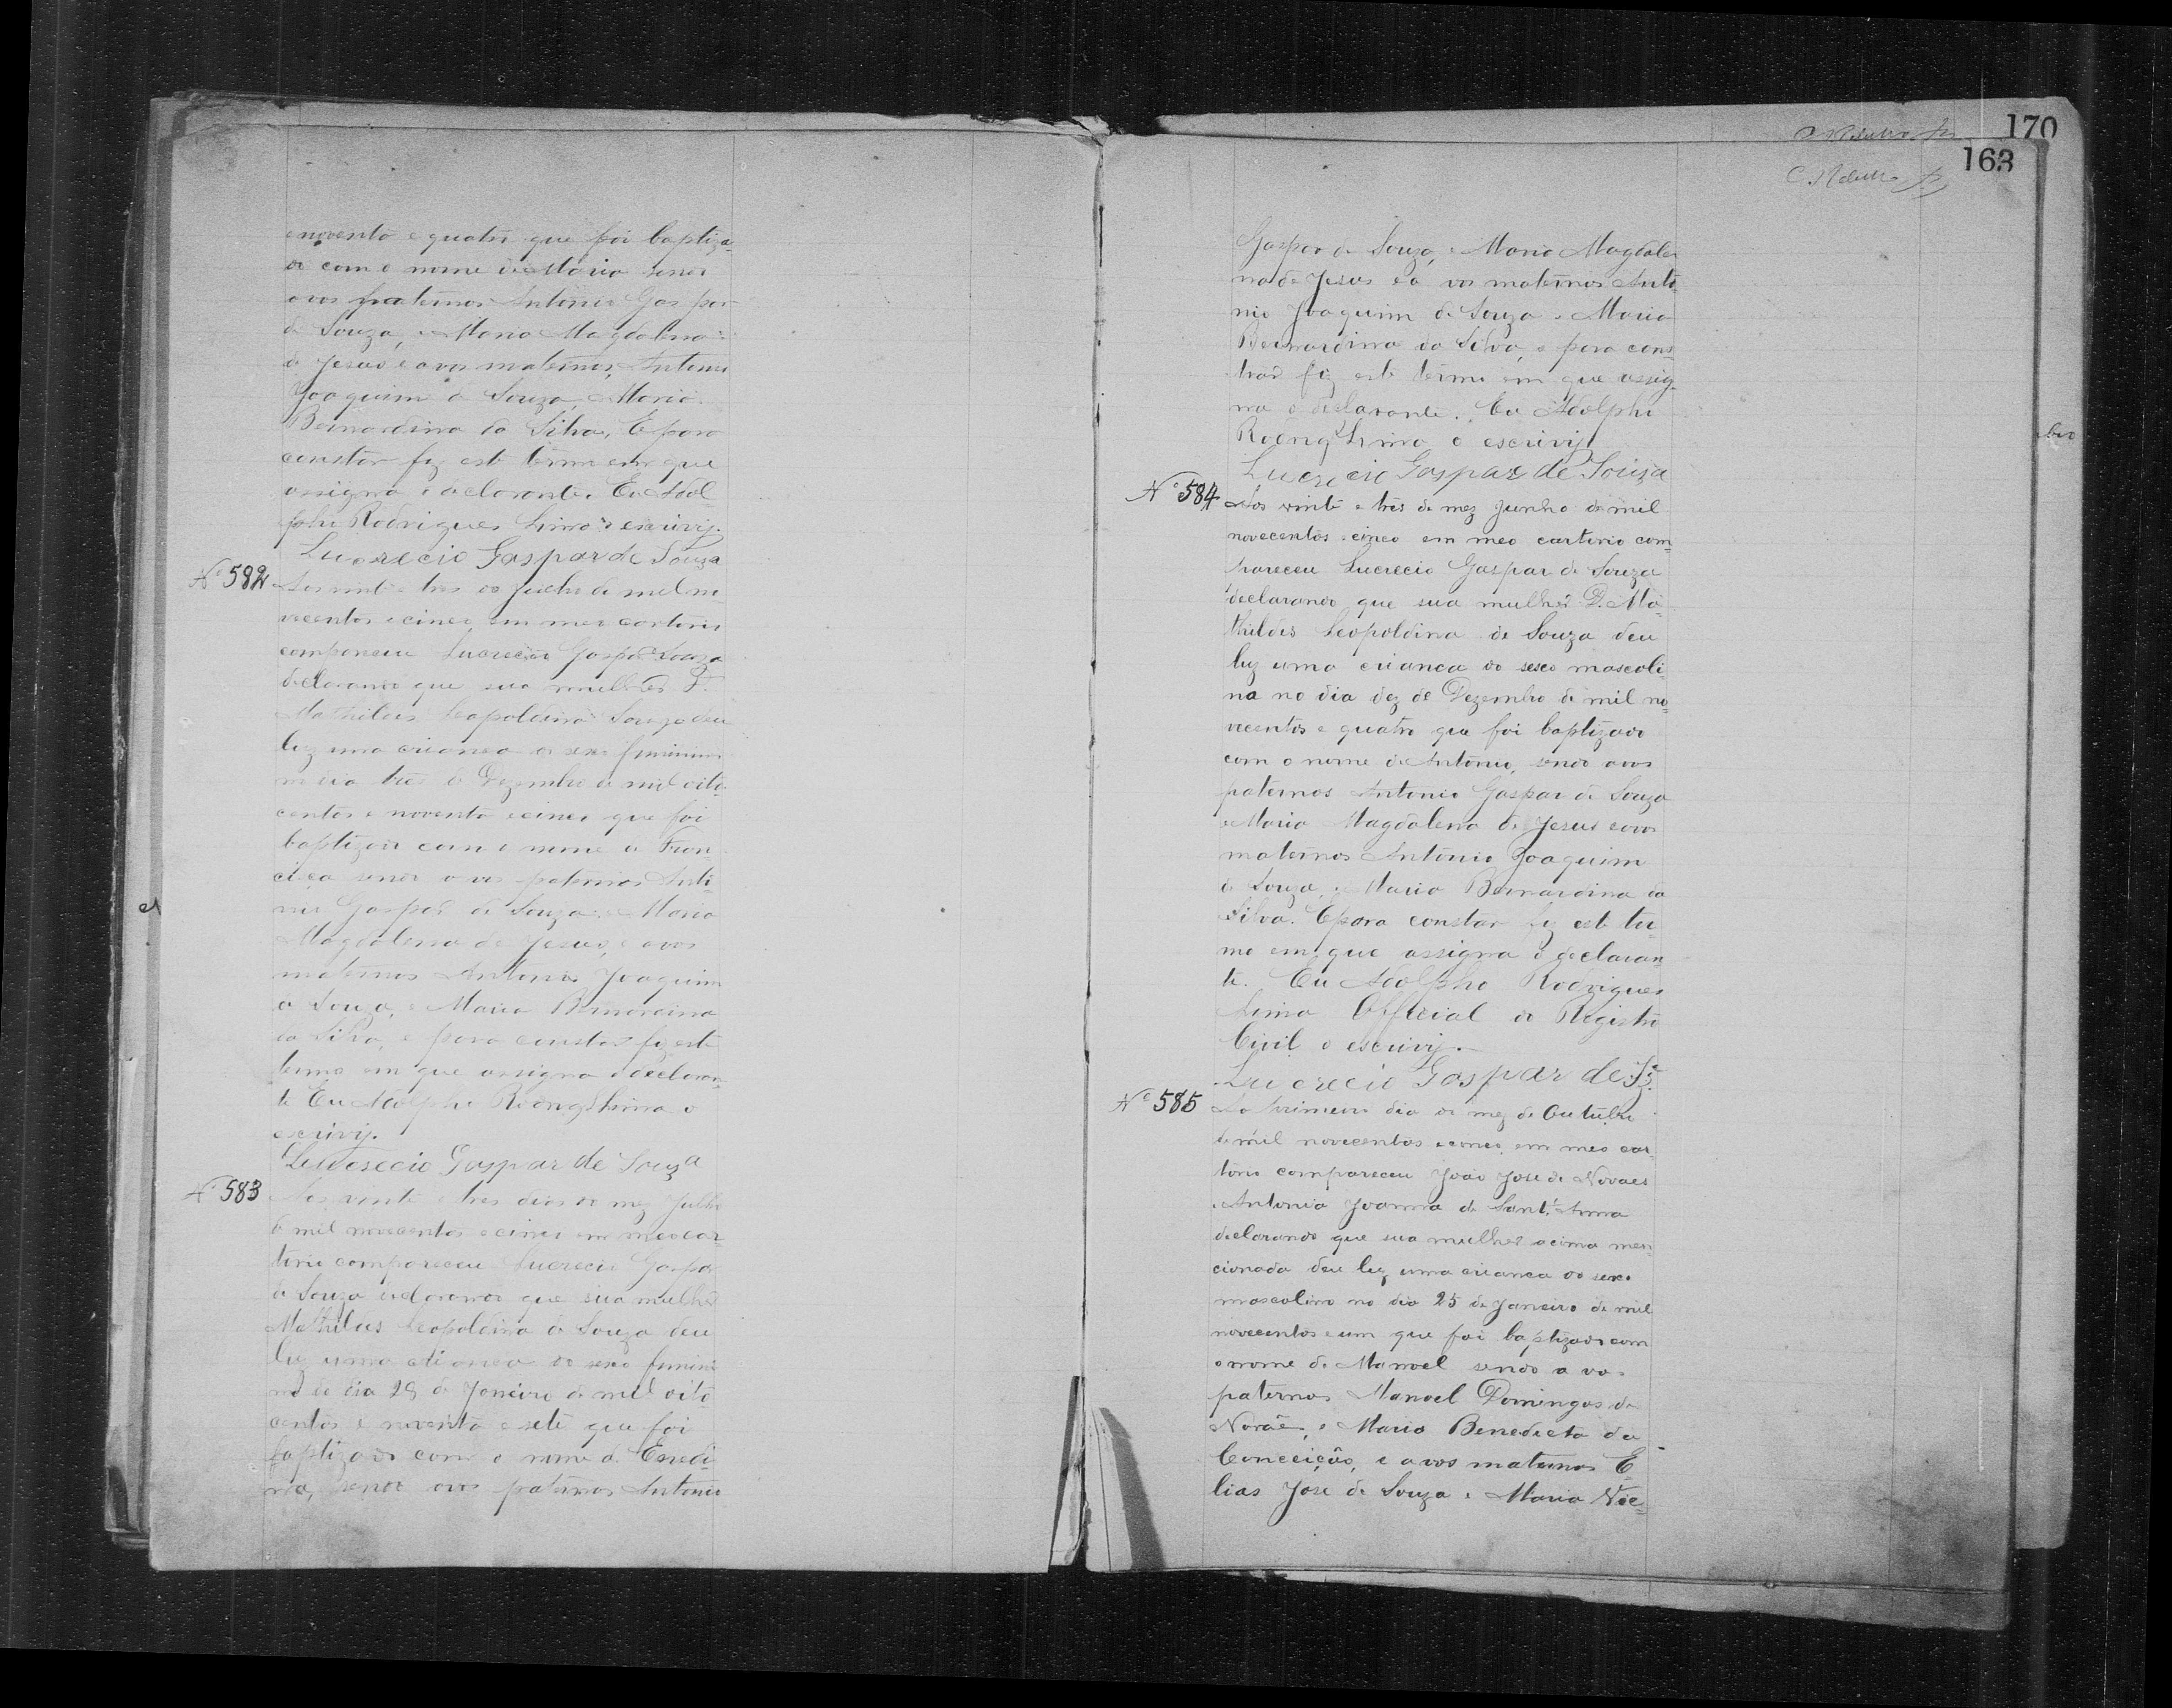 e noventa e quatro que foi baptiza-
do com o nome de Maria sendo
avos paternos Antonio Gaspar
de Souza, e Maria Magdalena
de Jesus e avos maternos, Antonio
Joaquim de Souza, e Maria
Bernardina da Silva. E para
constar fiz este termo em que
assigna o declarante. Eu Adol-
pho Rodrigues Lima o escrivy.
Lucrecio Gaspar de Souza
Nº 582 Aos vinte e tres de Julho de mil no-
vecentos e cinco, em meo cartorio
compareceu Lucrecio Gaspar Souza
declarando que sua mulher D.
Mathildes Leopoldina Souza deu
luz uma crianca do sexo feminino
no dia tres de Dezembro de mil oito-
centos e noventa e cinco que foi
baptizado com o nome de Fran-
cisca sendo avos paternos Anto-
nio Gaspar de Souza e Maria
Magdalena de Jesus, e avos
maternos Antonio Joaquim
de Souza, e Maria Bernardina
da Silva, e para constar fiz este
termo em que assigna o declaran-
te Eu Adolpho Rodrigs Lima o
escrivy.
Lucrecio Gaspar de Souza
Nº 583 Aos vinte e tres dias do mez Julho
de mil novecentos e cinco em meo car-
torio compareceu Lucrecio Gaspar
de Souza declarando que sua mulher
Mathildes Leopoldina de Souza deu
luz uma crianca do sexo femini-
no do dia 29 de Janeiro de mil oito
centos e noventa e sete que foi
baptizado com o nome de Enedi-
na, sendo avos paternos Antonio
170
163
Gaspar de Souza, e Maria Magdale-
na de Jesus e a vos maternos Anto-
nio Joaquim de Souza e Maria
Bernardina da Silva, e para cons-
tar fiz este termo em que assig-
na o declarante. Eu Adolpho
Rodrigs Lima o escrivy
Lucrecio Gaspar de Souza
Nº 584 Aos vinte e tres do mez Junho de mil
novecentos e cinco em meo cartorio com-
pareceu Lucrecio Gaspar de Souza
declarando que sua mulher D. Ma-
thildes Leopoldina de Souza deu
luz uma crianca do sexo mascoli-
na no dia dez de Dezembro de mil no-
vecentos e quatro que foi baptizado
com o nome de Antonio, sendo avos
paternos Antonio Gaspar de Souza
e Maria Magdalena de Jesus e avos
maternos Antonio Joaquim
de Souza, e Maria Bernardina da
Silva. E para constar fiz este ter-
mo em que assigna o declaran-
te. Eu Adolpho Rodrigues
Lima Official do Registro
Civil o escrivy.
Lucrecio Gaspar de Sz.ª
Nº 585 Ao primeiro dia do mez de Outubro
de mil novecentos e cinco, em meo car-
torio compareceu João Jose de Novaes
e Antonia Joanna de Sant'Anna
declarando que sua mulher acima men-
cionada deu luz uma crianca do sexo
mascolino no dia 25 de Janeiro de mil
novecentos e um que foi baptizado com
o nome de Manoel sendo a vos
paternos Manoel Domingos de
Novaê, e Maria Benedicta da
Conceição, e avos maternos E-
lias Jose de Souza e Maria